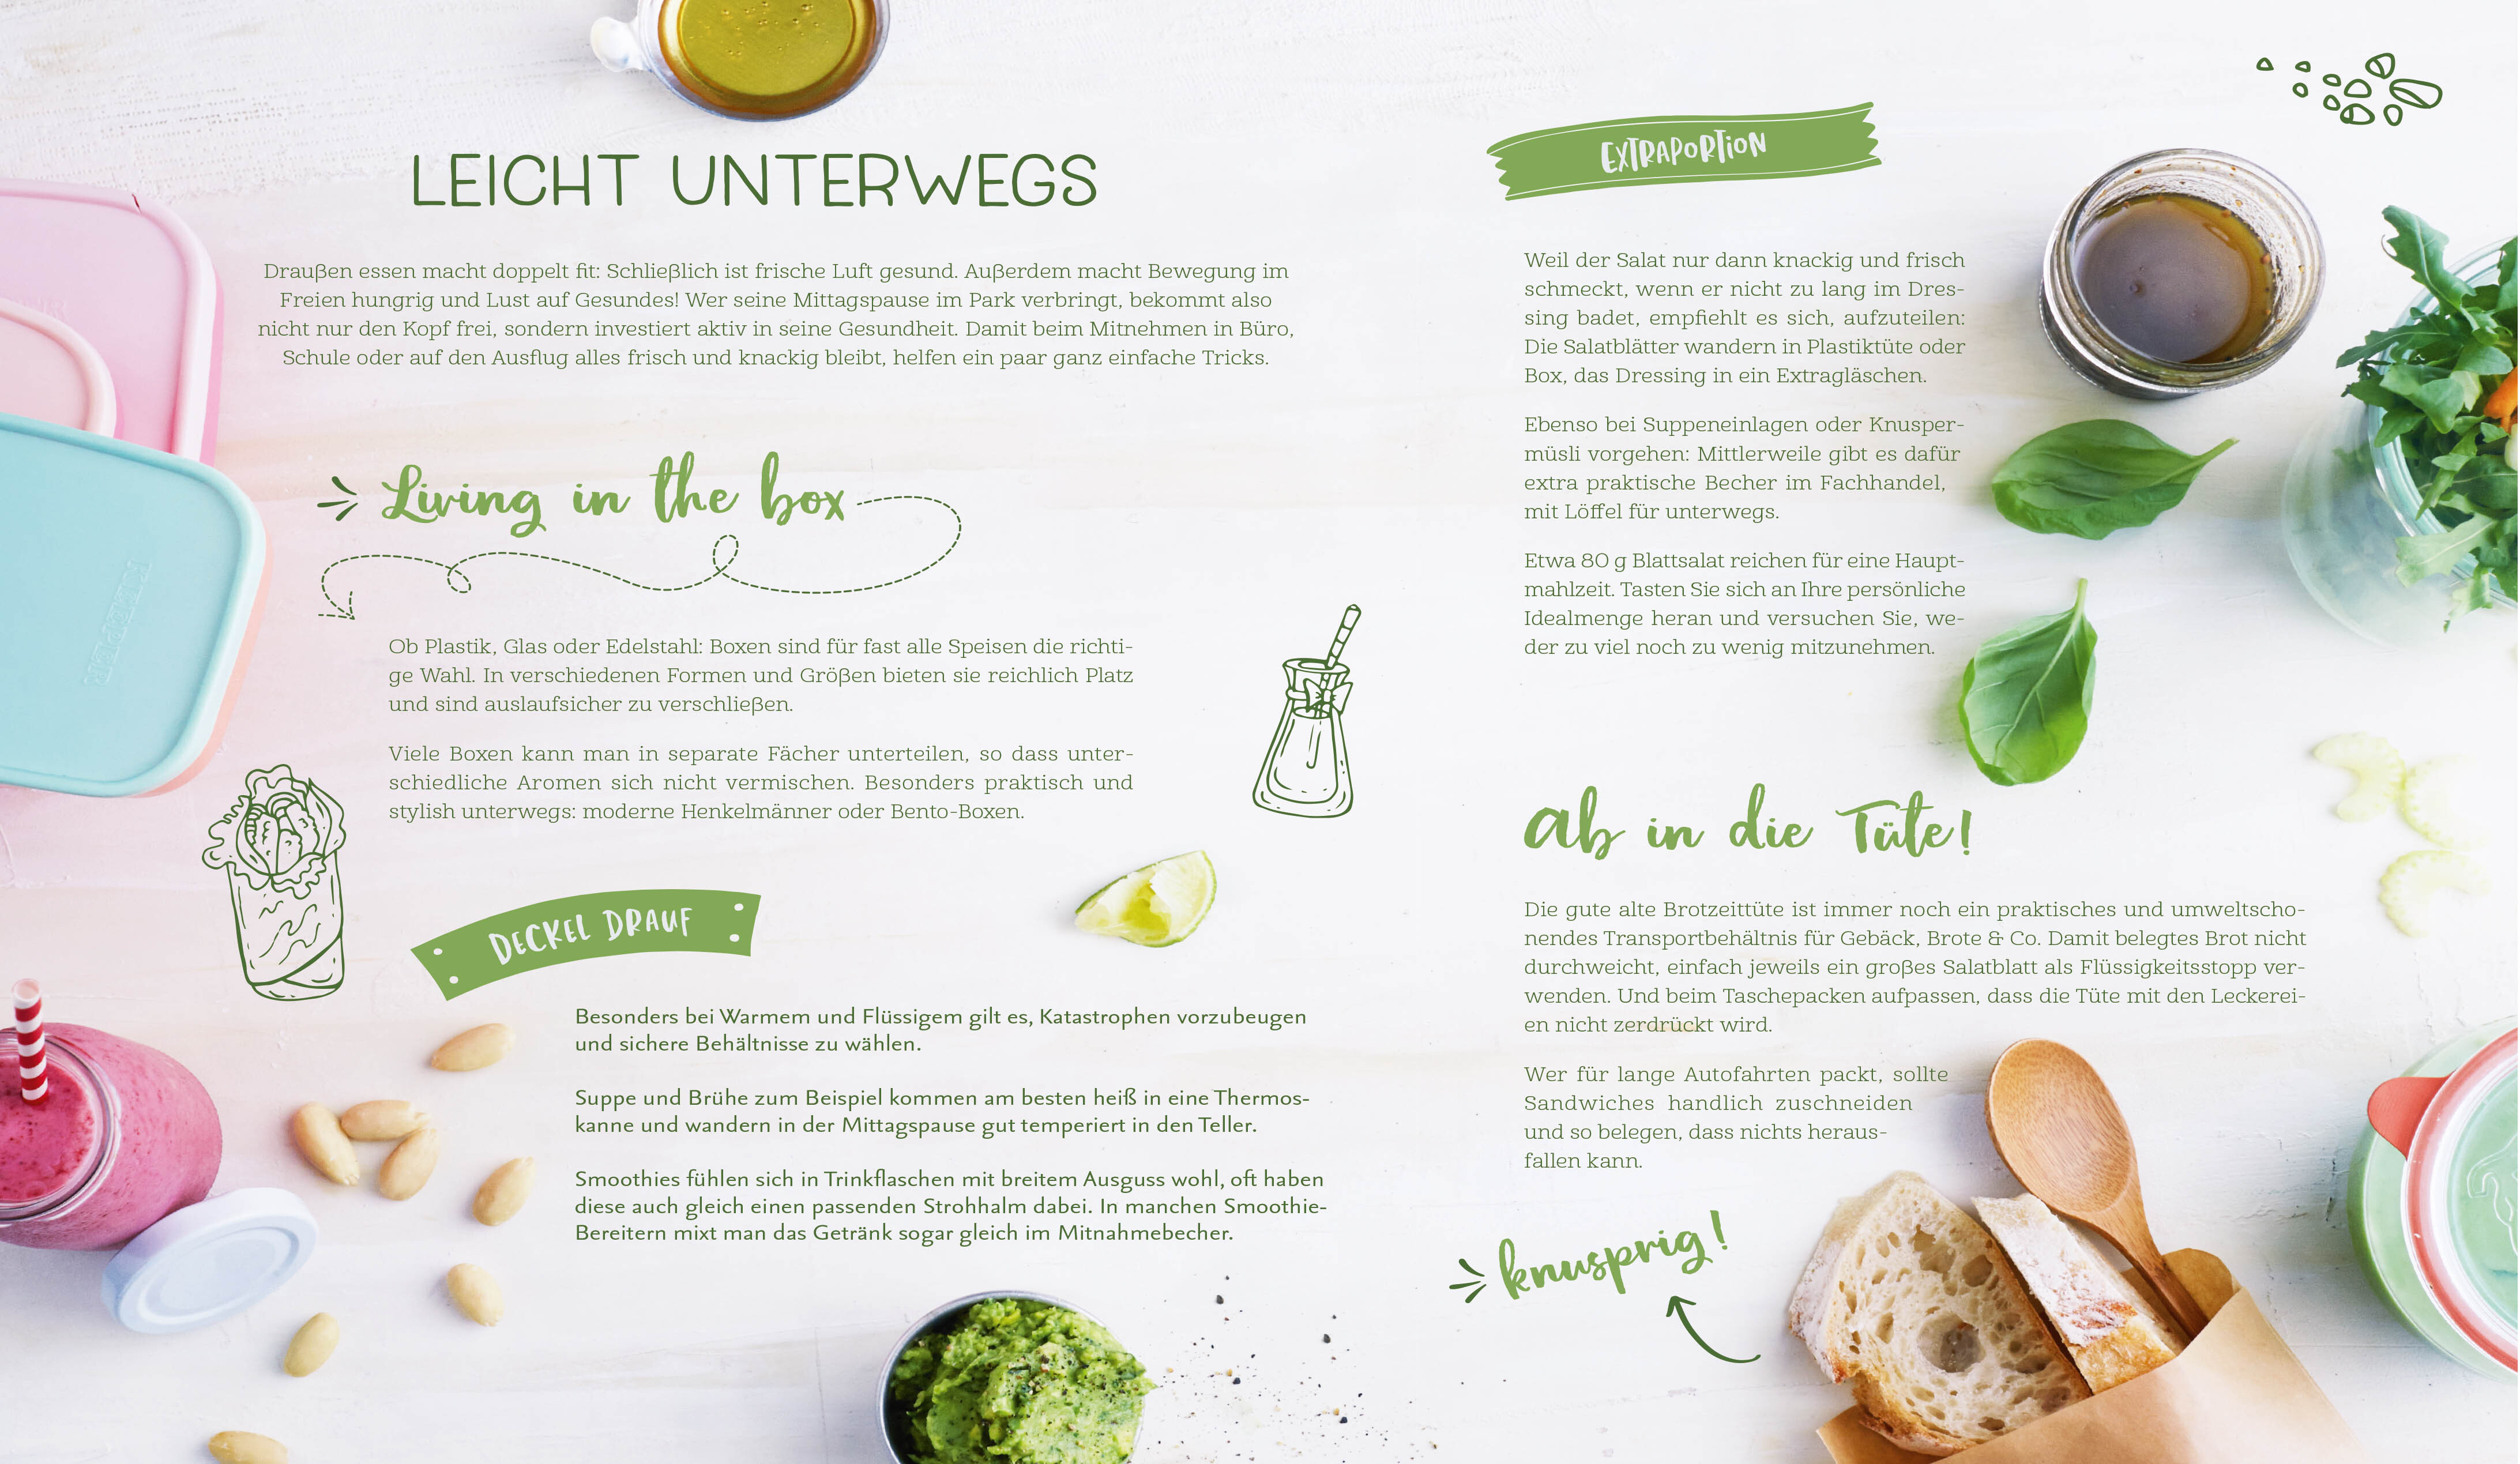 LEICHT UNTERWEGS
Draußen essen macht doppelt fit: Schließlich ist frische Luft gesund. Außerdem macht Bewegung im
Freien hungrig und Lust auf Gesundes! Wer seine Mittagspause im Park verbringt, bekommt also
nicht nur den Kopf frei, sondern investiert aktiv in seine Gesundheit. Damit beim Mitnehmen in Büro,
Schule oder auf den Ausflug alles frisch und knackig bleibt, helfen ein paar ganz einfache Tricks.
Living in the box
Ob Plastik, Glas oder Edelstahl: Boxen sind für fast alle Speisen die richti-
ge Wahl. In verschiedenen Formen und Größen bieten sie reichlich Platz
und sind auslaufsicher zu verschließen.
Viele Boxen kann man in separate Fächer unterteilen, so dass unter-
schiedliche Aromen sich nicht vermischen. Besonders praktisch und
stylish unterwegs: moderne Henkelmänner oder Bento-Boxen.
DECKEL DRAUF
Besonders bei Warmem und Flüssigem gilt es, Katastrophen vorzubeugen
und sichere Behältnisse zu wählen.
Suppe und Brühe zum Beispiel kommen am besten heiß in eine Thermos-
kanne und wandern in der Mittagspause gut temperiert in den Teller.
Smoothies fühlen sich in Trinkflaschen mit breitem Ausguss wohl, oft haben
diese auch gleich einen passenden Strohhalm dabei. In manchen Smoothie-
Bereitern mixt man das Getränk sogar gleich im Mitnahmebecher.
EXTRAPORTION
Weil der Salat nur dann knackig und frisch
schmeckt, wenn er nicht zu lang im Dres-
sing badet, empfiehlt es sich, aufzuteilen:
Die Salatblätter wandern in Plastiktüte oder
Box, das Dressing in ein Extragläschen.
Ebenso bei Suppeneinlagen oder Knusper-
müsli vorgehen: Mittlerweile gibt es dafür
extra praktische Becher im Fachhandel,
mit Löffel für unterwegs.
Etwa 80 g Blattsalat reichen für eine Haupt-
mahlzeit. Tasten Sie sich an Ihre persönliche
Idealmenge heran und versuchen Sie, we-
der zu viel noch zu wenig mitzunehmen.
Ab in die Tüte!
Die gute alte Brotzeittüte ist immer noch ein praktisches und umweltscho-
nendes Transportbehältnis für Gebäck, Brote & Co. Damit belegtes Brot nicht
durchweicht, einfach jeweils ein großes Salatblatt als Flüssigkeitsstopp ver-
wenden. Und beim Taschepacken aufpassen, dass die Tüte mit den Leckerei-
en nicht zerdrückt wird.
Wer für lange Autofahrten packt, sollte
Sandwiches handlich zuschneiden
und so belegen, dass nichts heraus-
fallen kann.
knusprig!